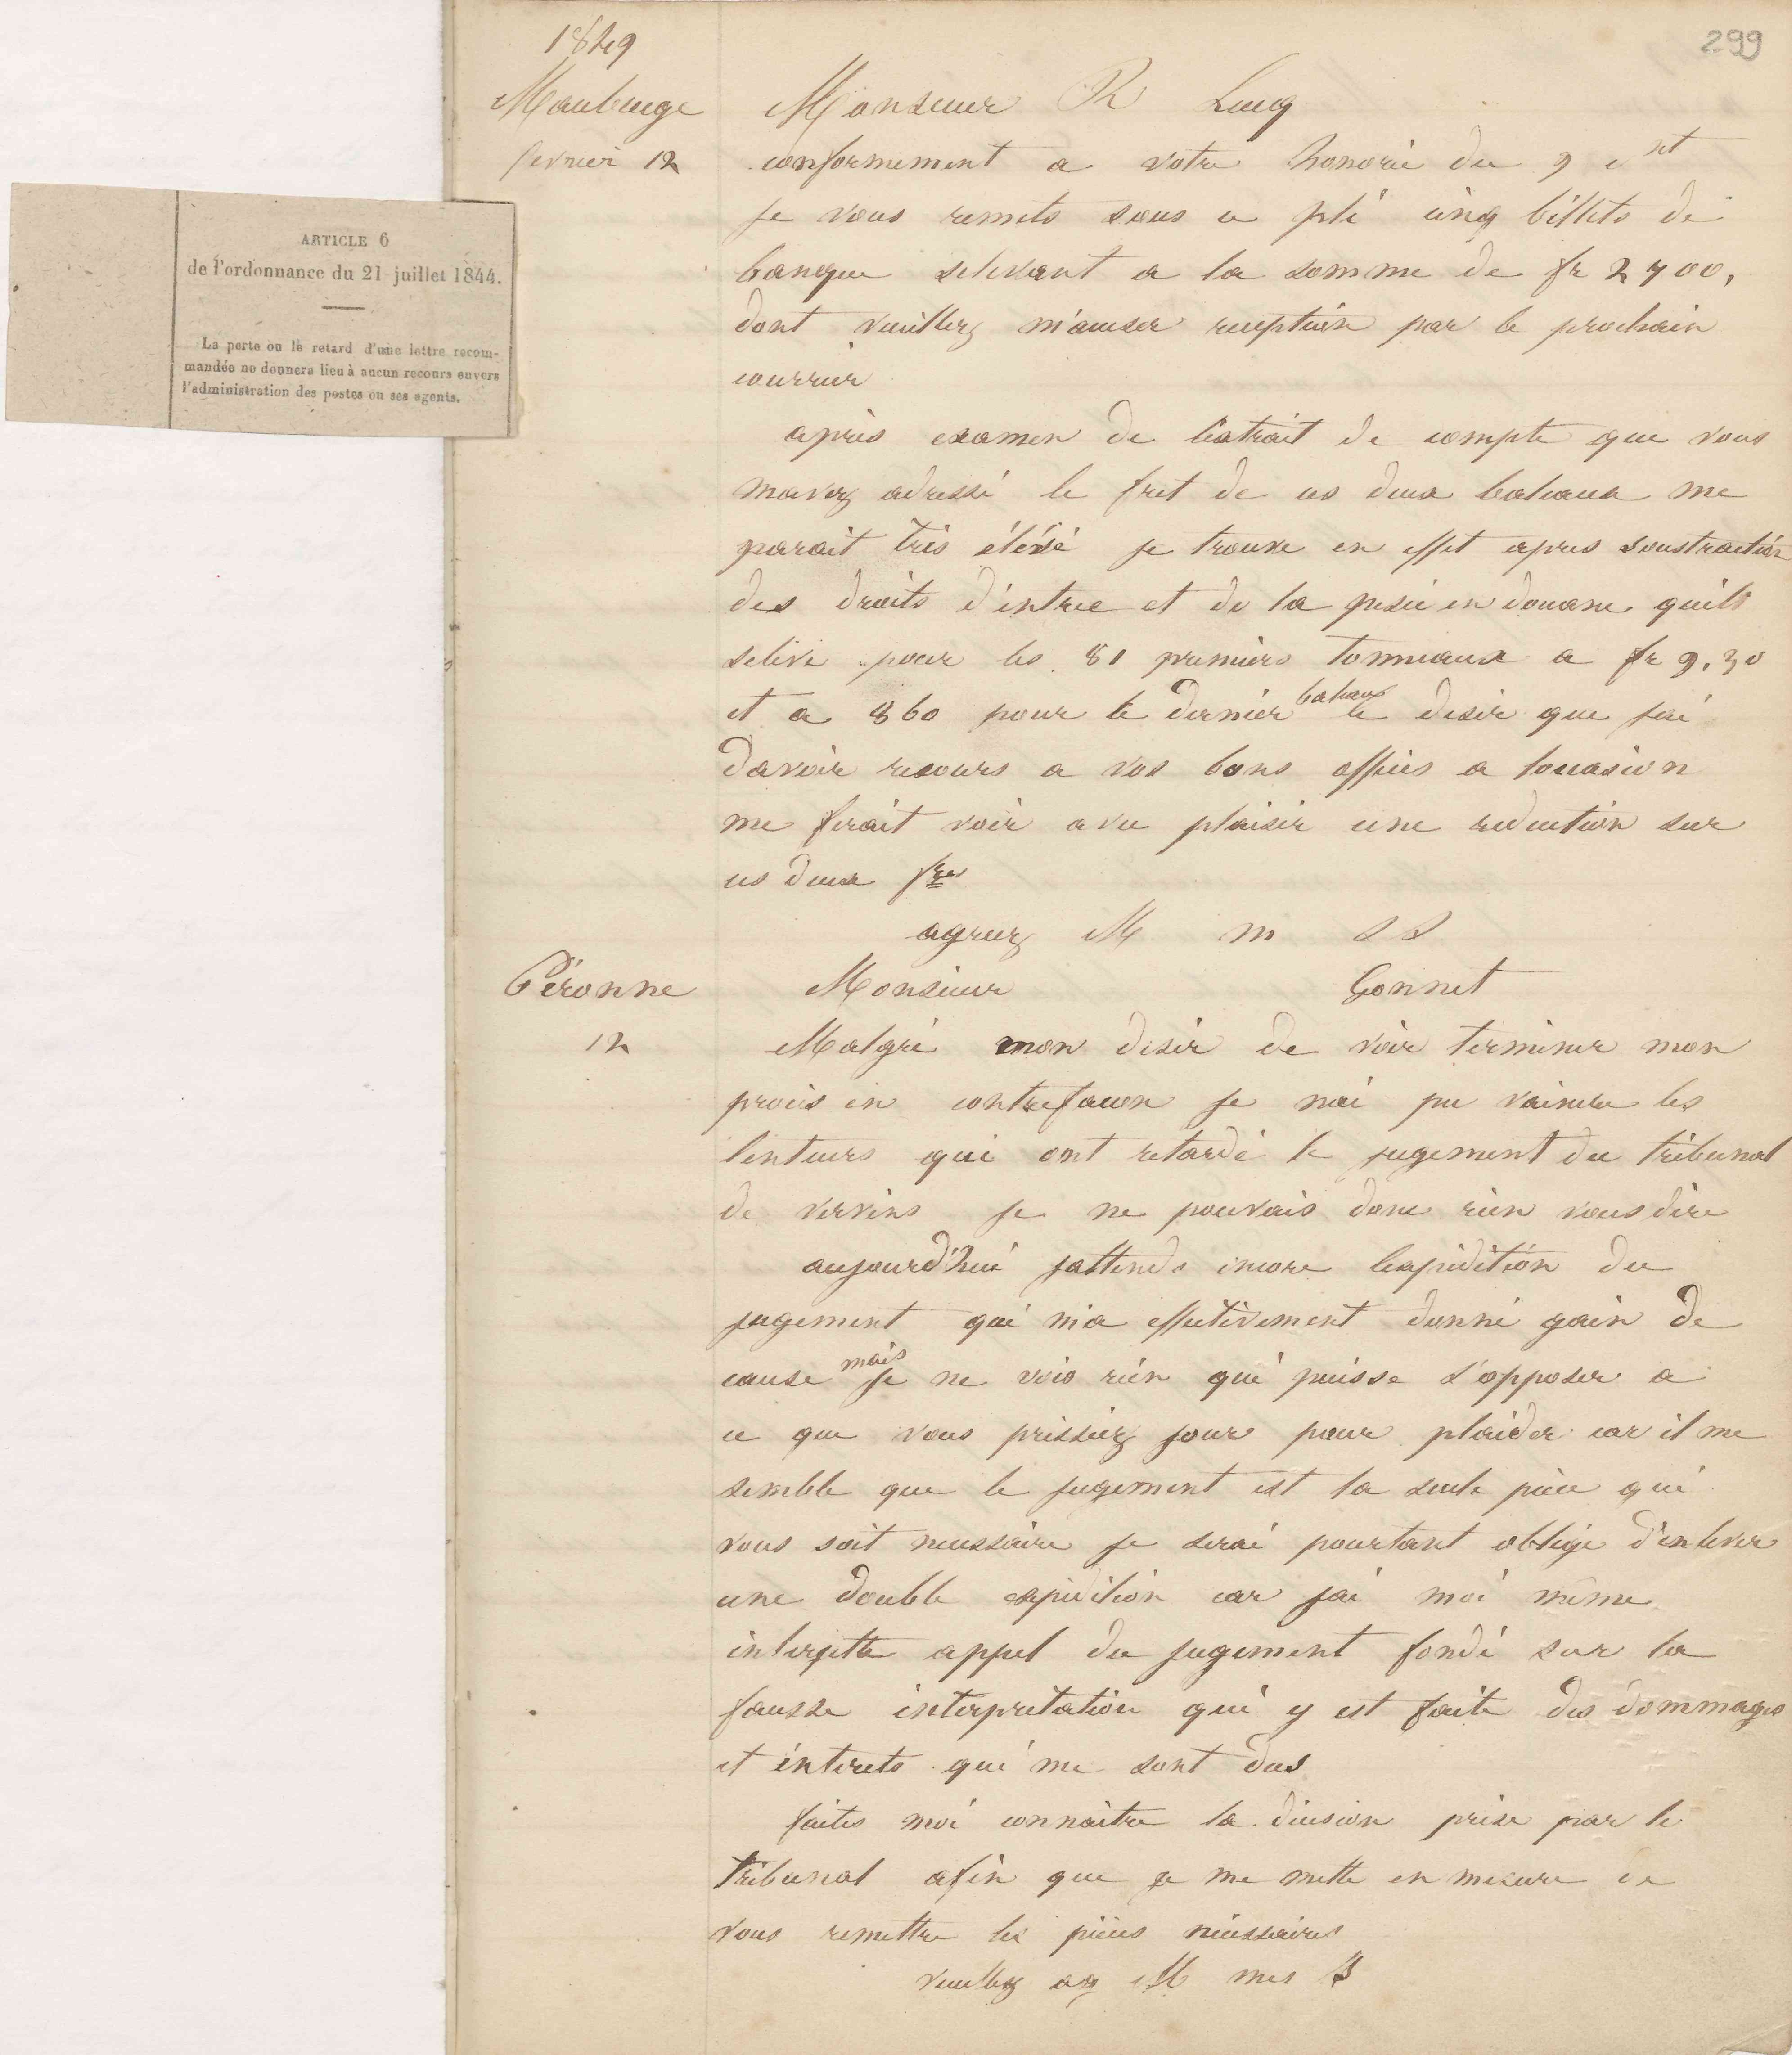 1849
299
Maubeuge
fevrier 12
ARTICLE 6
de l'ordonnance du 21 juillet 1844.
La perte ou le retard d'une lettre recom-
mandée ne donnera lieu à aucun recours envers
l'administration des postes ou ses agents.
Monsieur R Lucq
conformement a votre honorée du 9 ct
je vous remets sous ce pli cinq billets de
banque selevant a la somme de fr 2700,
dont veuillez m'accuser reception par le prochain
courrier
après examen de l'extrait de compte que vous
mavez adressé le fret de ces deux bateaux me
parait très élévé je trouve en effet apres soustraction
des droits d'entree et de la pesée en douane quils
seleve pour les 81 premiers tonneaux a fr 9,30
et a 860 pour le dernier bateau le desir que jai
davoir recours a vos bons offices a loccasion
me ferait voir avec plaisir une reduction sur
ces deux
agreez M m s s
Péronne
12
Monsieur Gonnet
Malgré mon desir de voir terminer mon
procès en contrefacon je nai pu vaincre les
lenteurs qui ont retardé le jugement du tribunal
de vervins je ne pouvais donc rien vous dire
aujourd'hui jattends encore lexpédition du
jugement qui m'a effectivement donné gain de
cause mais je ne vois rien qui puisse s'opposer a
ce que vous prissiez jour pour plaider car il me
semble que le jugement est la seule pièce qui
vous soit necessaire je serai pourtant obligé d'enlever
une double expédition car jai moi même
interjetté appel du jugement fondé sur la
fausse interpretation qui y est faite des dommages
et interets qui me sont dus
faites moi connaitre la décision prise par le
tribunal afin que je me mette en mesure de
vous remettre les pièces nécessaires
veuillez ag M mes S